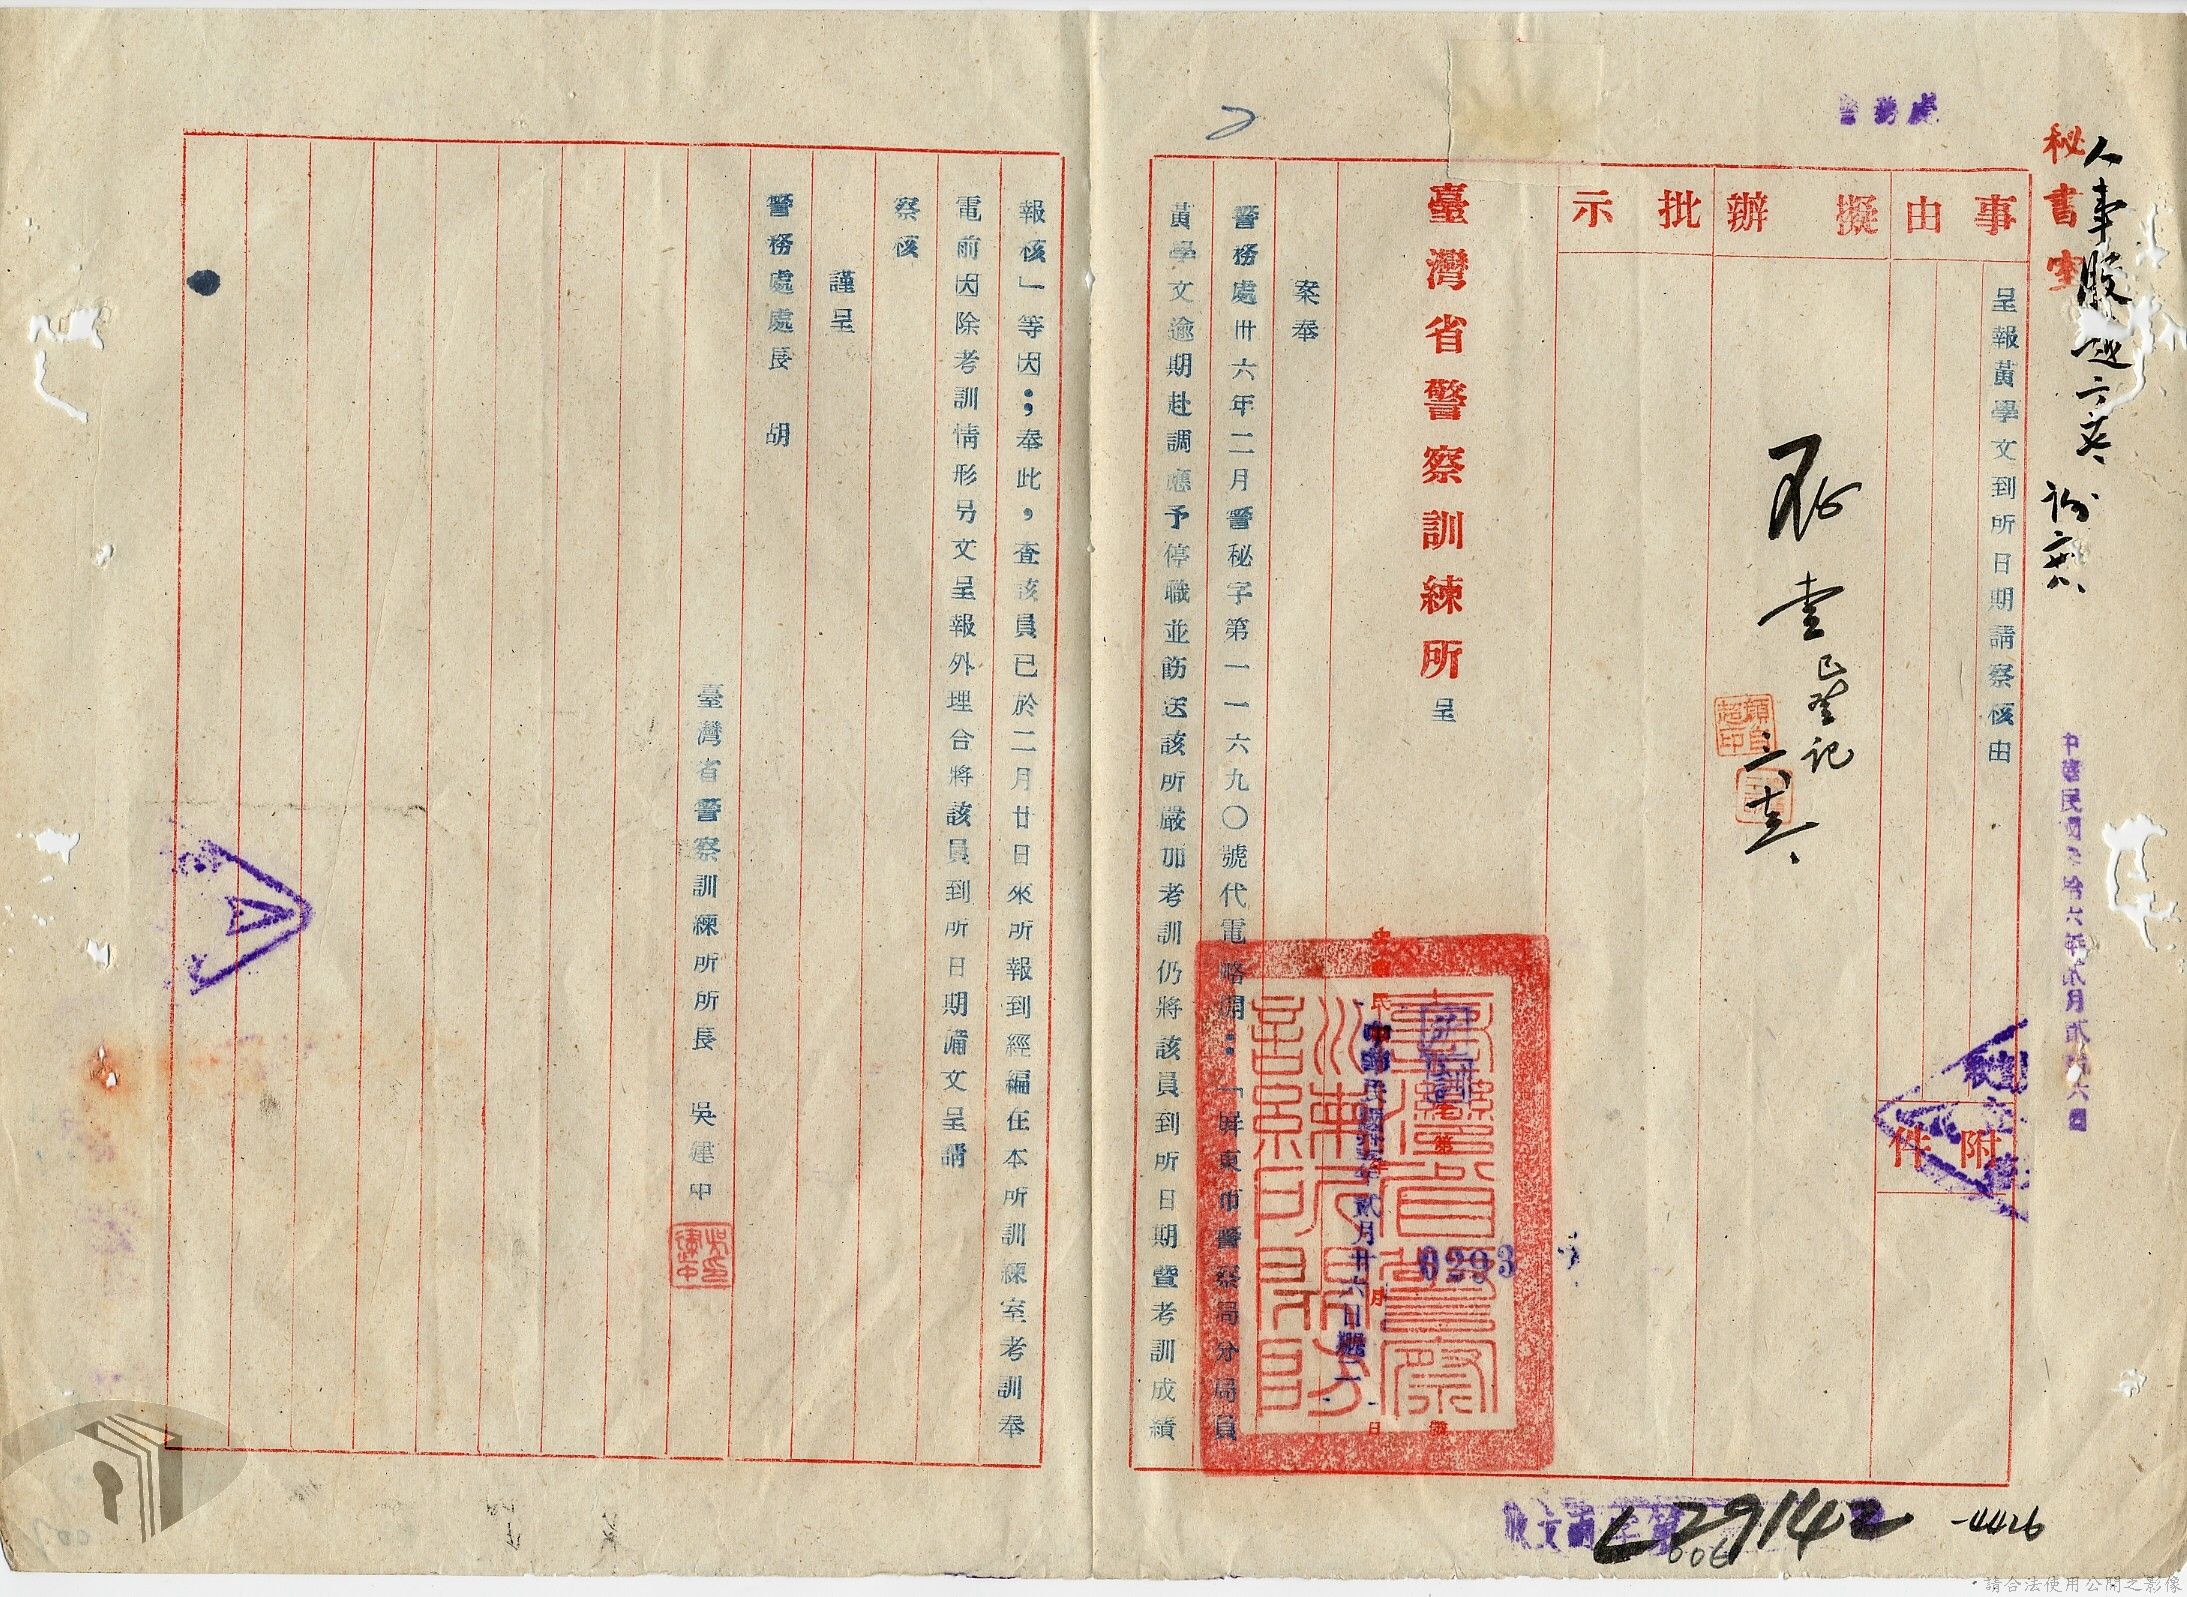 秘書室
人事股
中華民國參拾六年貳月貳拾六日
事由
呈報黃學文到所日期請察核由
附件
擬辦
已登記
批示
臺灣省警察訓練所 呈
字第 0293 號
中華民國卅六年貳月廿六日
案奉
警務處卅六年二月警秘字第一一六九〇號代電略開：「屏東市警察局分局員
黃學文逾期赴調應予停職並飭送該所嚴加考訓仍將該員到所日期暨考訓成績
報核」等因；奉此，查該員已於二月廿日來所報到經編在本所訓練室考訓奉
電前因除考訓情形另文呈報外理合將該員到所日期備文呈請
察核
謹呈
警務處處長 胡
臺灣省警察訓練所所長 吳建中
L29142
-4426
006
請合法使用公開之影像